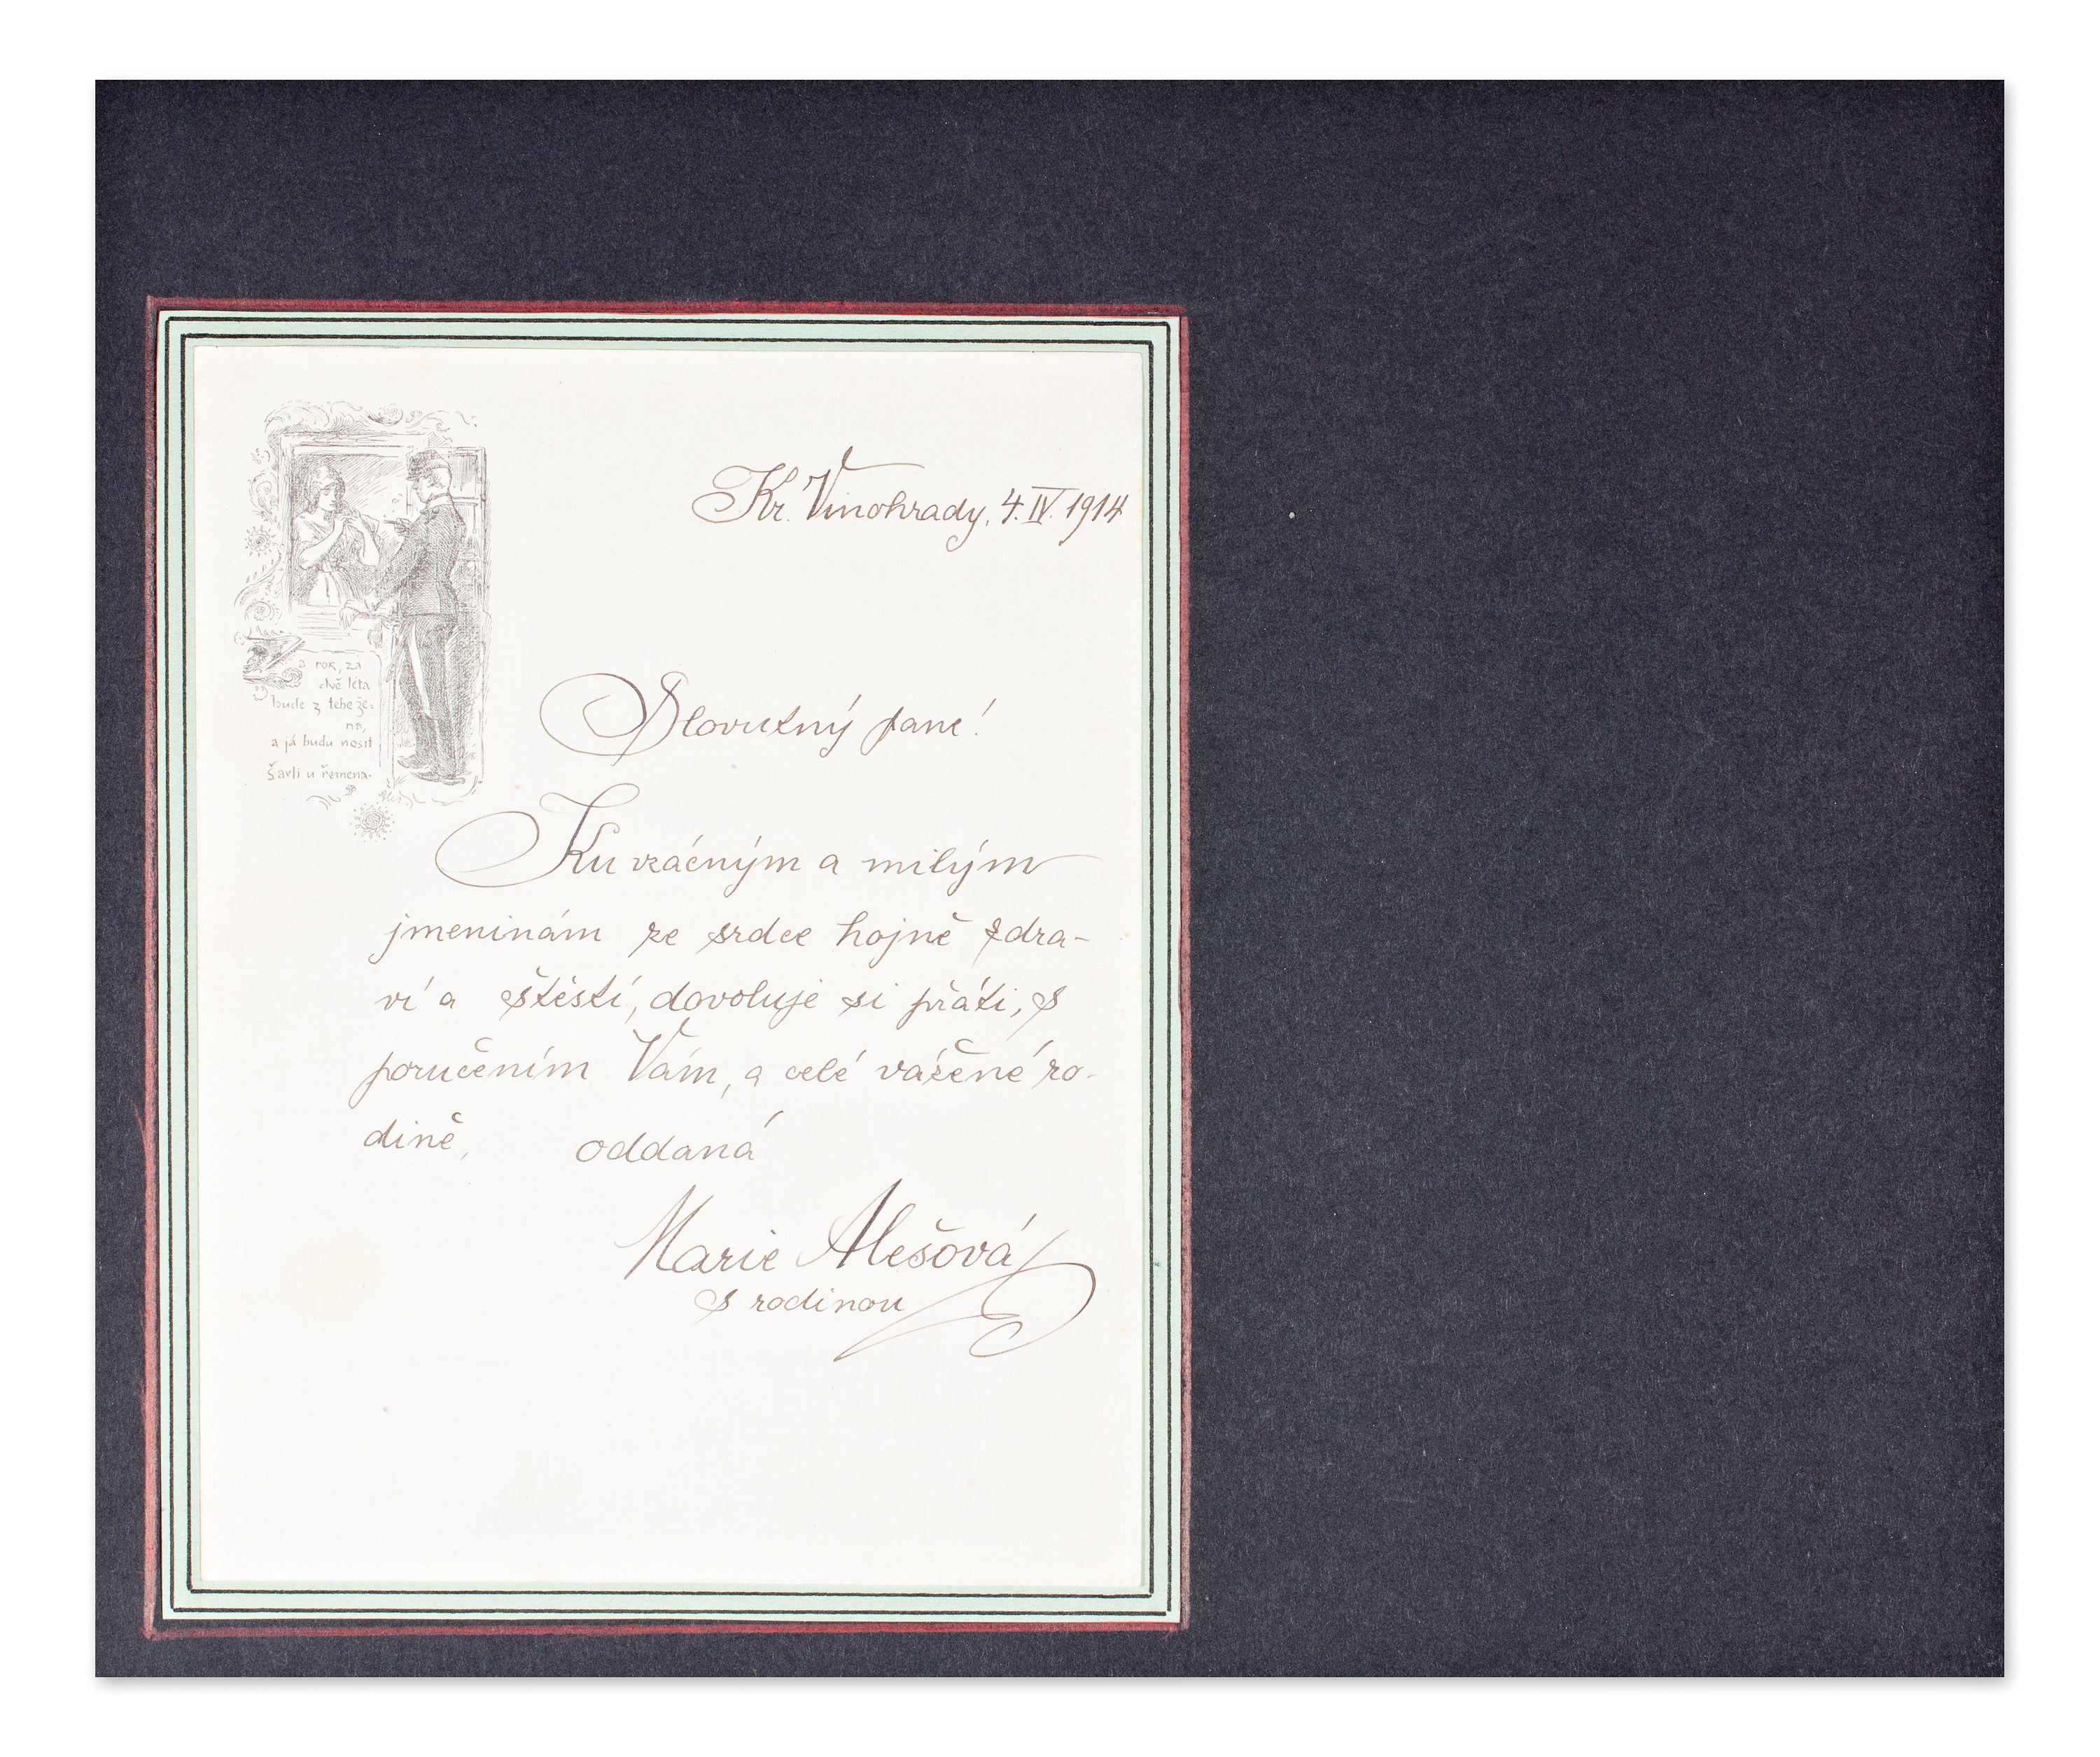 Kr. Vinohrady, 4. IV. 1914
Za rok, za
dvě léta
bude z tebe že-
na,
a já budu nosit
šavli u řemena.
Slovutný pane!
Ku vzácným a milým
jmeninám ze srdce hojně zdra-
ví a štěstí, dovoluje si přáti, s
poručením Vám, a celé vážené ro-
dině, oddaná
Marie Alešová
s rodinou